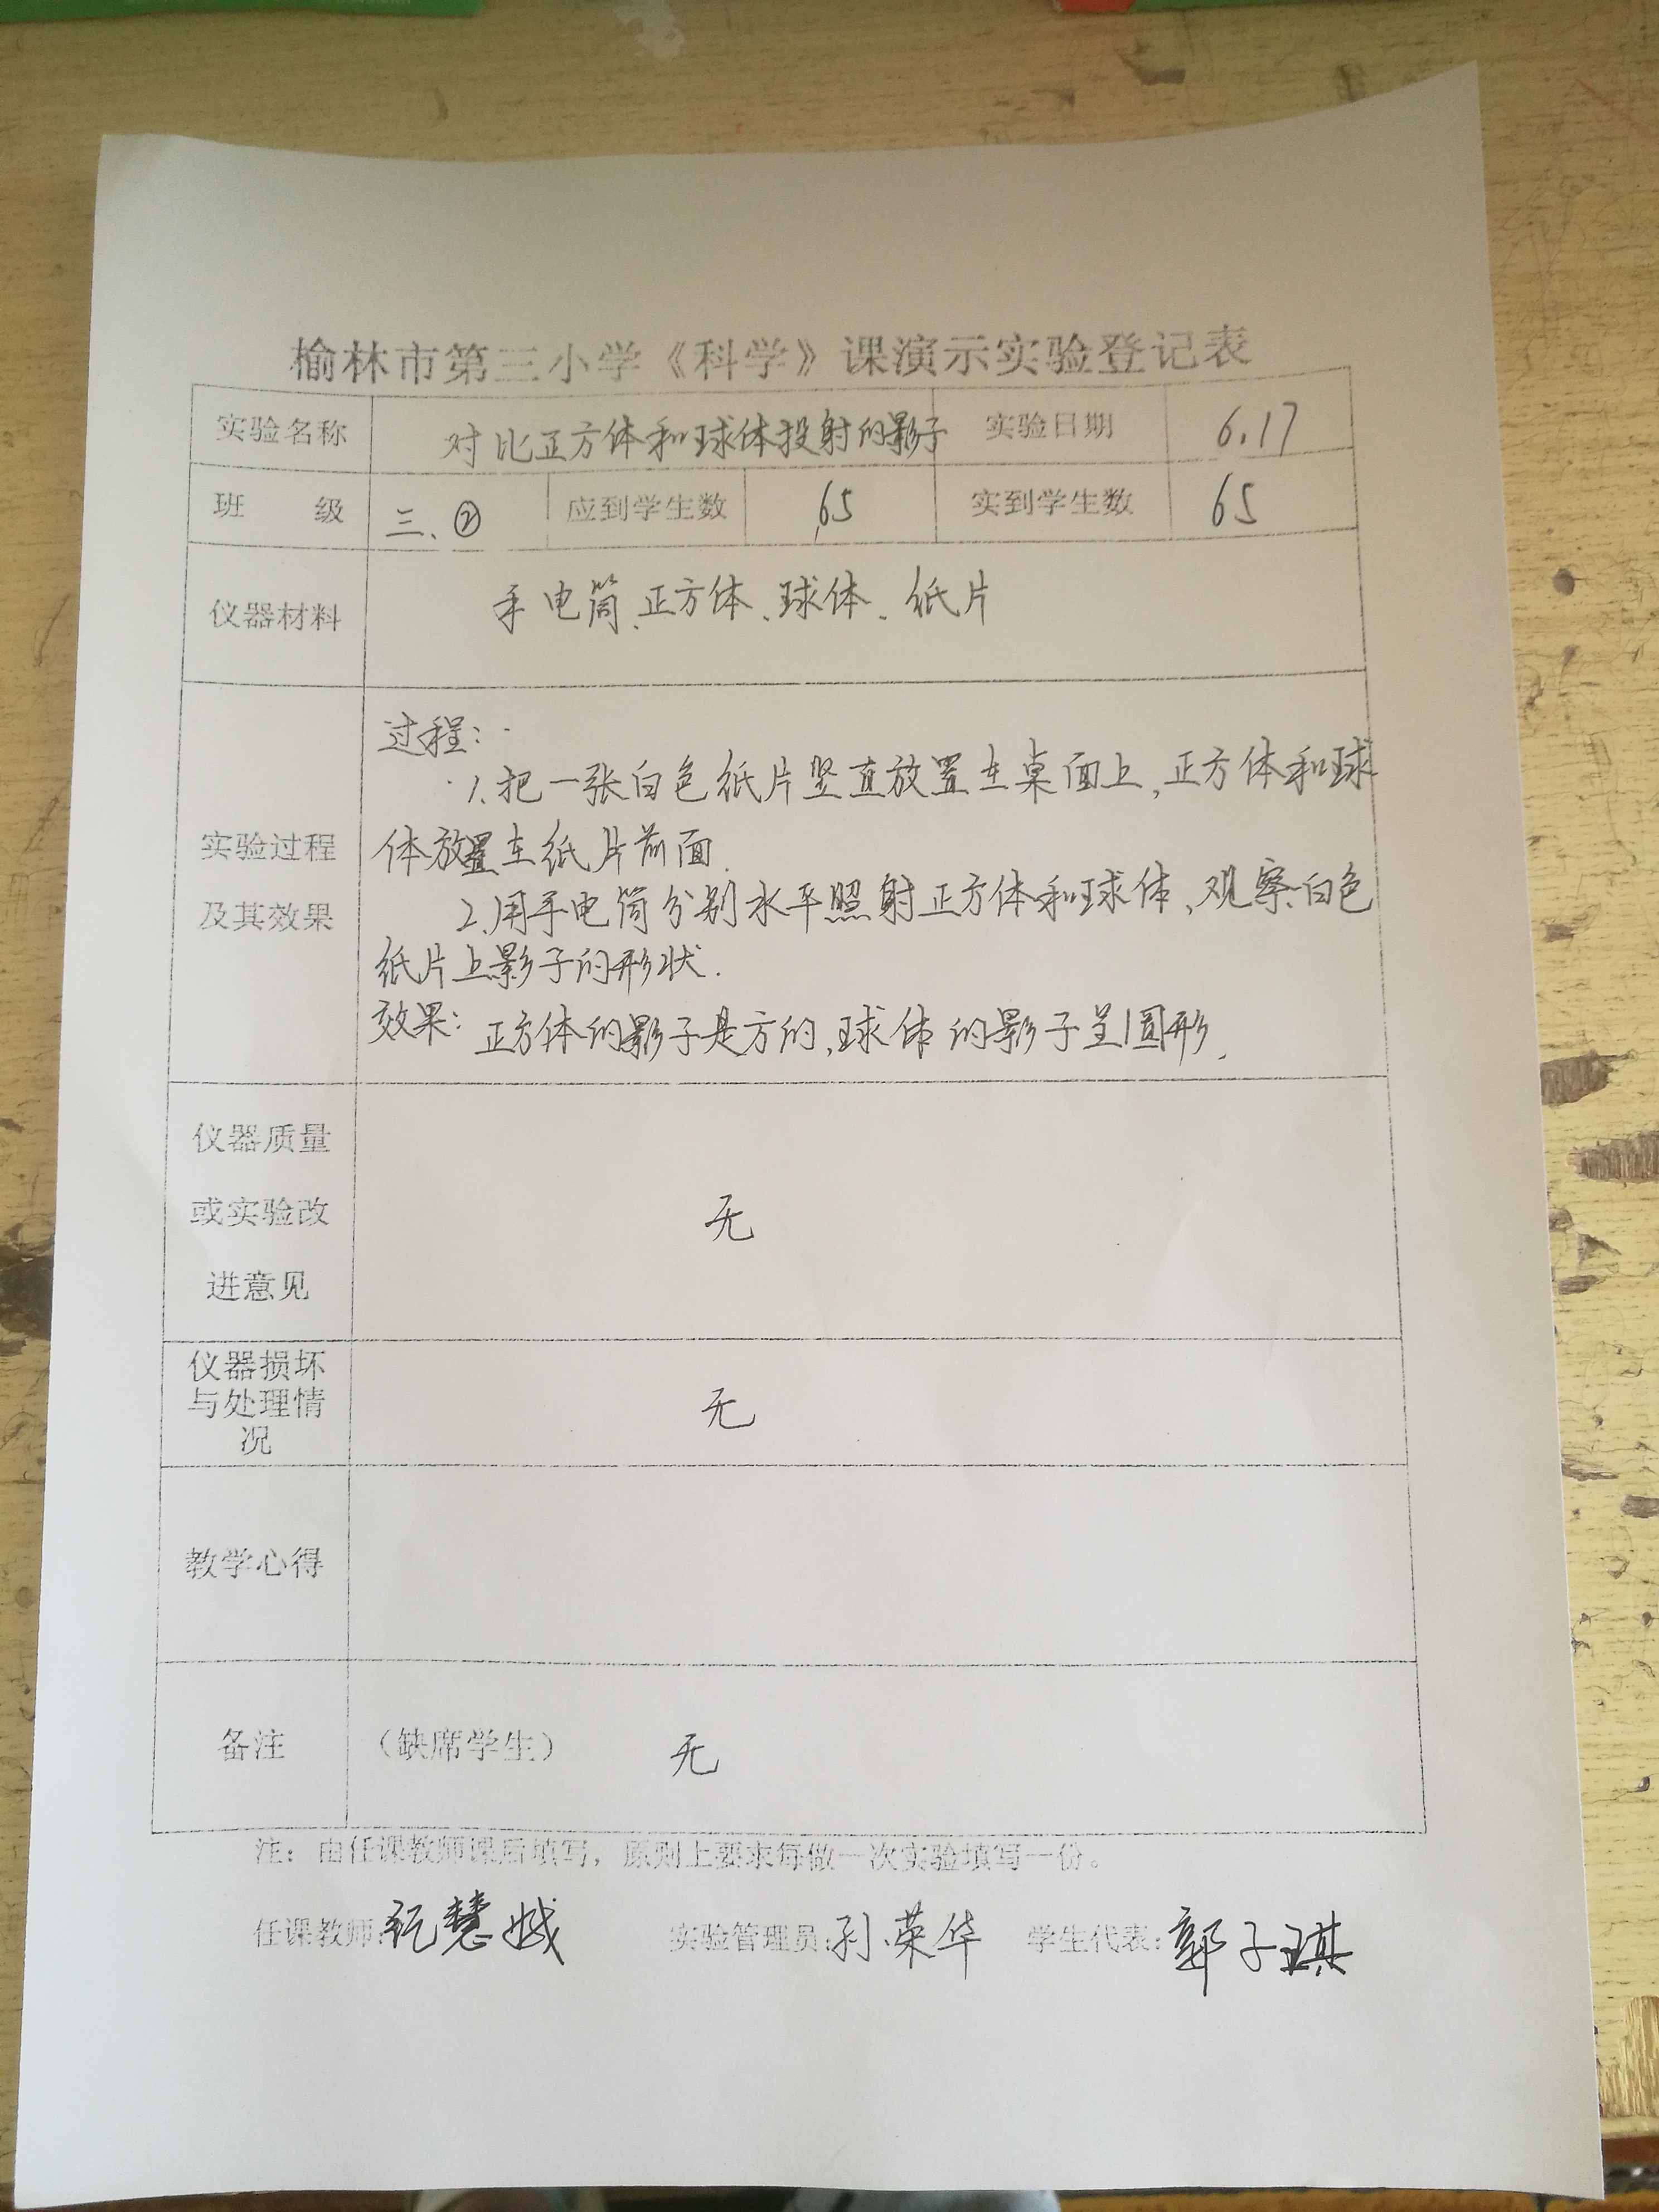 榆林市第三小学《科学》课演示实验登记表
实验名称 对比正方体和球体投射的影子 实验日期 6.17
班 级 三、② 应到学生数 65 实到学生数 65
仪器材料 手电筒、正方体、球体、纸片
过程：
1.把一张白色纸片竖直放置在桌面上,正方体和球
体放置在纸片前面.
2.用手电筒分别水平照射正方体和球体,观察白色
纸片上影子的形状.
效果：正方体的影子是方的,球体的影子呈圆形.
实验过程
及其效果
仪器质量
或实验改
进意见
无
仪器损坏
与处理情
况
无
教学心得
备注 （缺席学生） 无
注：由任课教师课后填写，原则上要求每做一次实验填写一份。
任课教师：纪慧娥 实验管理员：孙荣华 学生代表：郭子琪